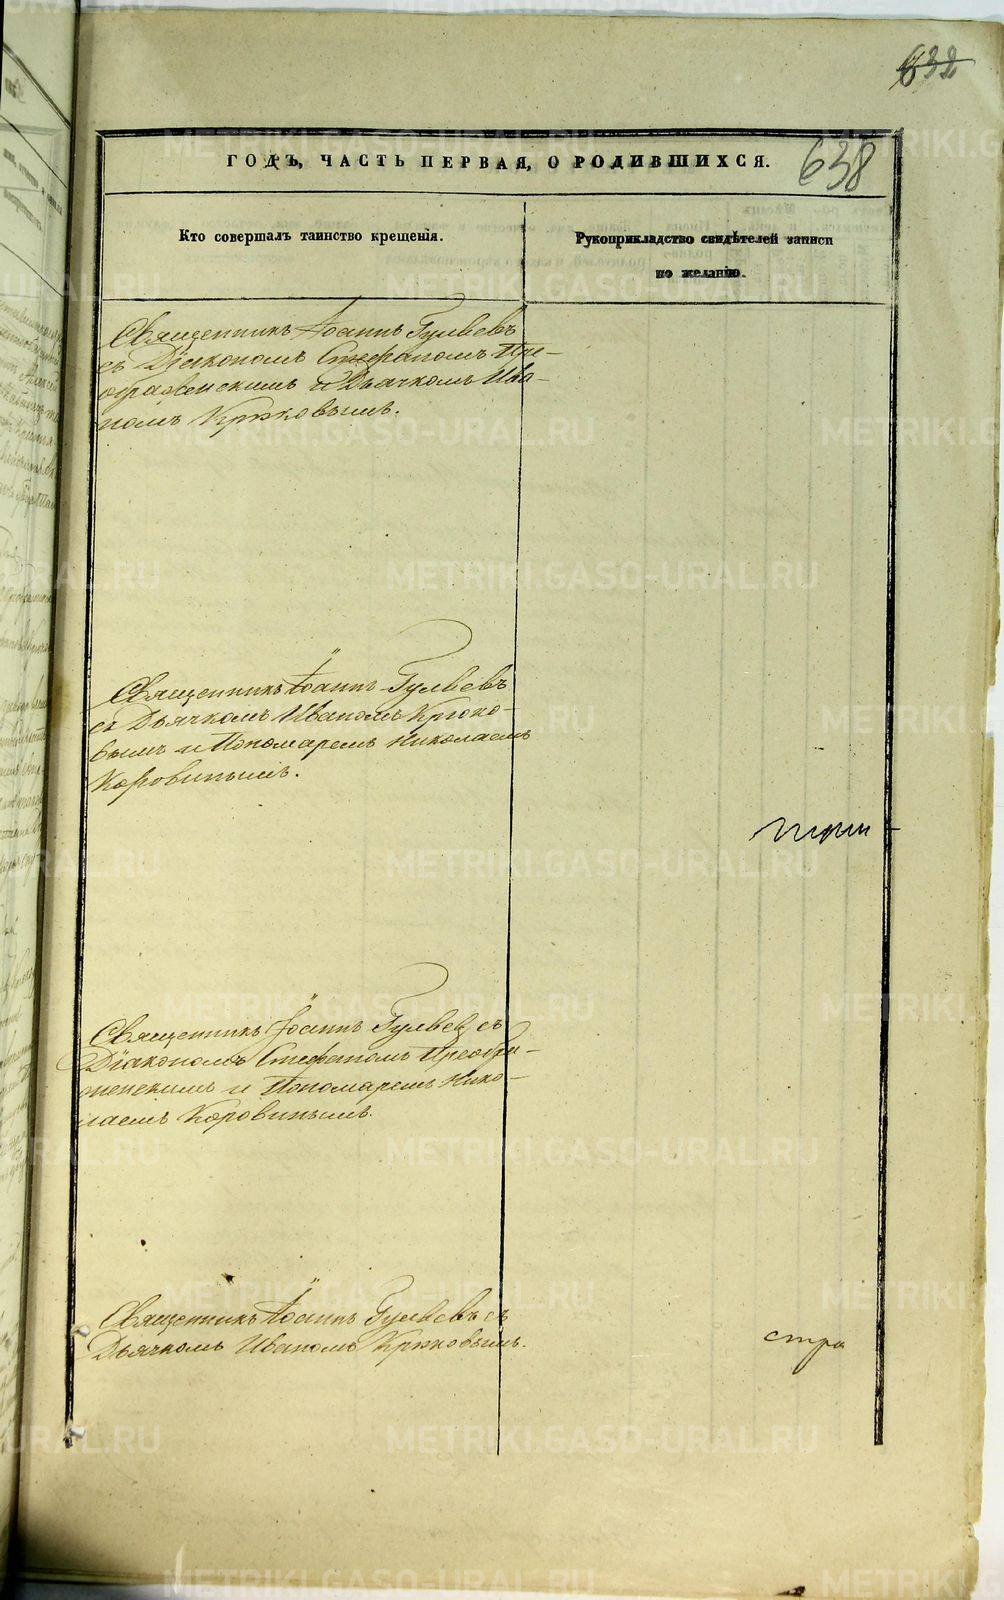 632
638
ГОДЪ, ЧАСТЬ ПЕРВАЯ, О РОДИВШИХСЯ.
Кто совершалъ таинство крещенія.
Рукоприкладство свидѣтелей записи
по желанію.
Священникъ Іоаннъ Гуляевъ
съ Діакономъ Стефаномъ Пре-
ображенскимъ и Дьячкомъ Ива-
номъ Крюковымъ.
Священникъ Іоаннъ Гуляевъ
съ Дьячкомъ Иваномъ Крюко-
вымъ и Пономаремъ Николаемъ
Коровинымъ.
Священникъ Іоаннъ Гуляевъ съ
Діакономъ Стефаномъ Преобра-
женскимъ и Пономаремъ Нико-
лаемъ Коровинымъ.
Священникъ Іоаннъ Гуляевъ съ
Дьячкомъ Иваномъ Крюковымъ.
стра
METRIKI.GASO-URAL.RU